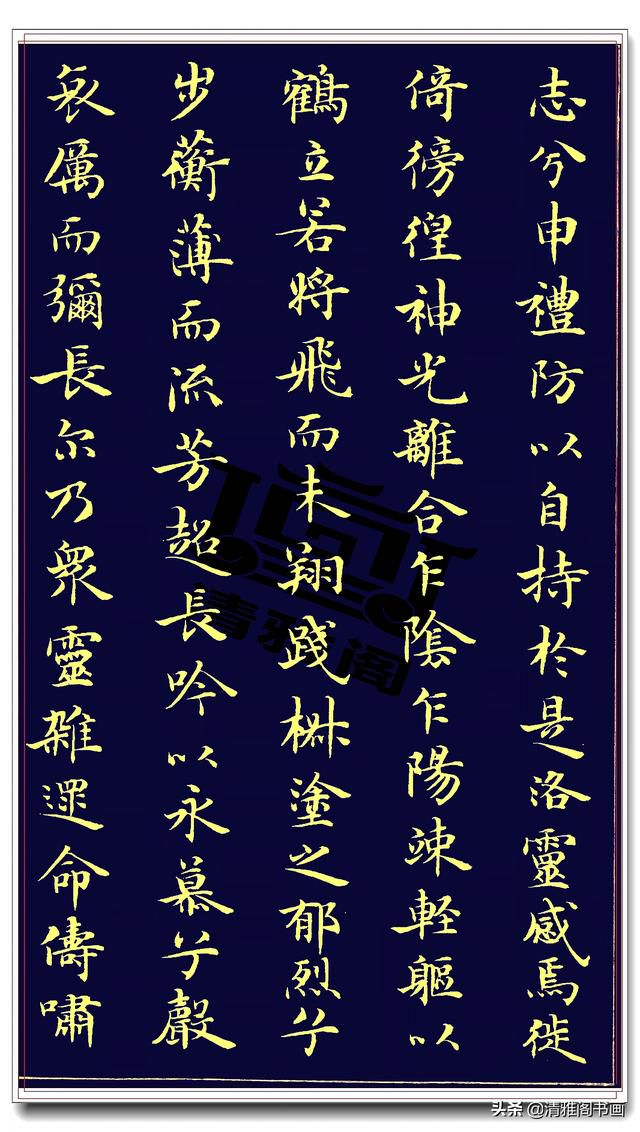 志兮申禮防以自持於是洛靈感焉徙
倚徬徨神光離合乍陰乍陽竦軽軀以
鶴立若將飛而未翔踐椒塗之郁烈兮
步蘅薄而流芳超長吟以永慕兮聲
哀厲而彌長尔乃衆靈雜遝命儔嘯
清雅阁
头条@清雅阁书画